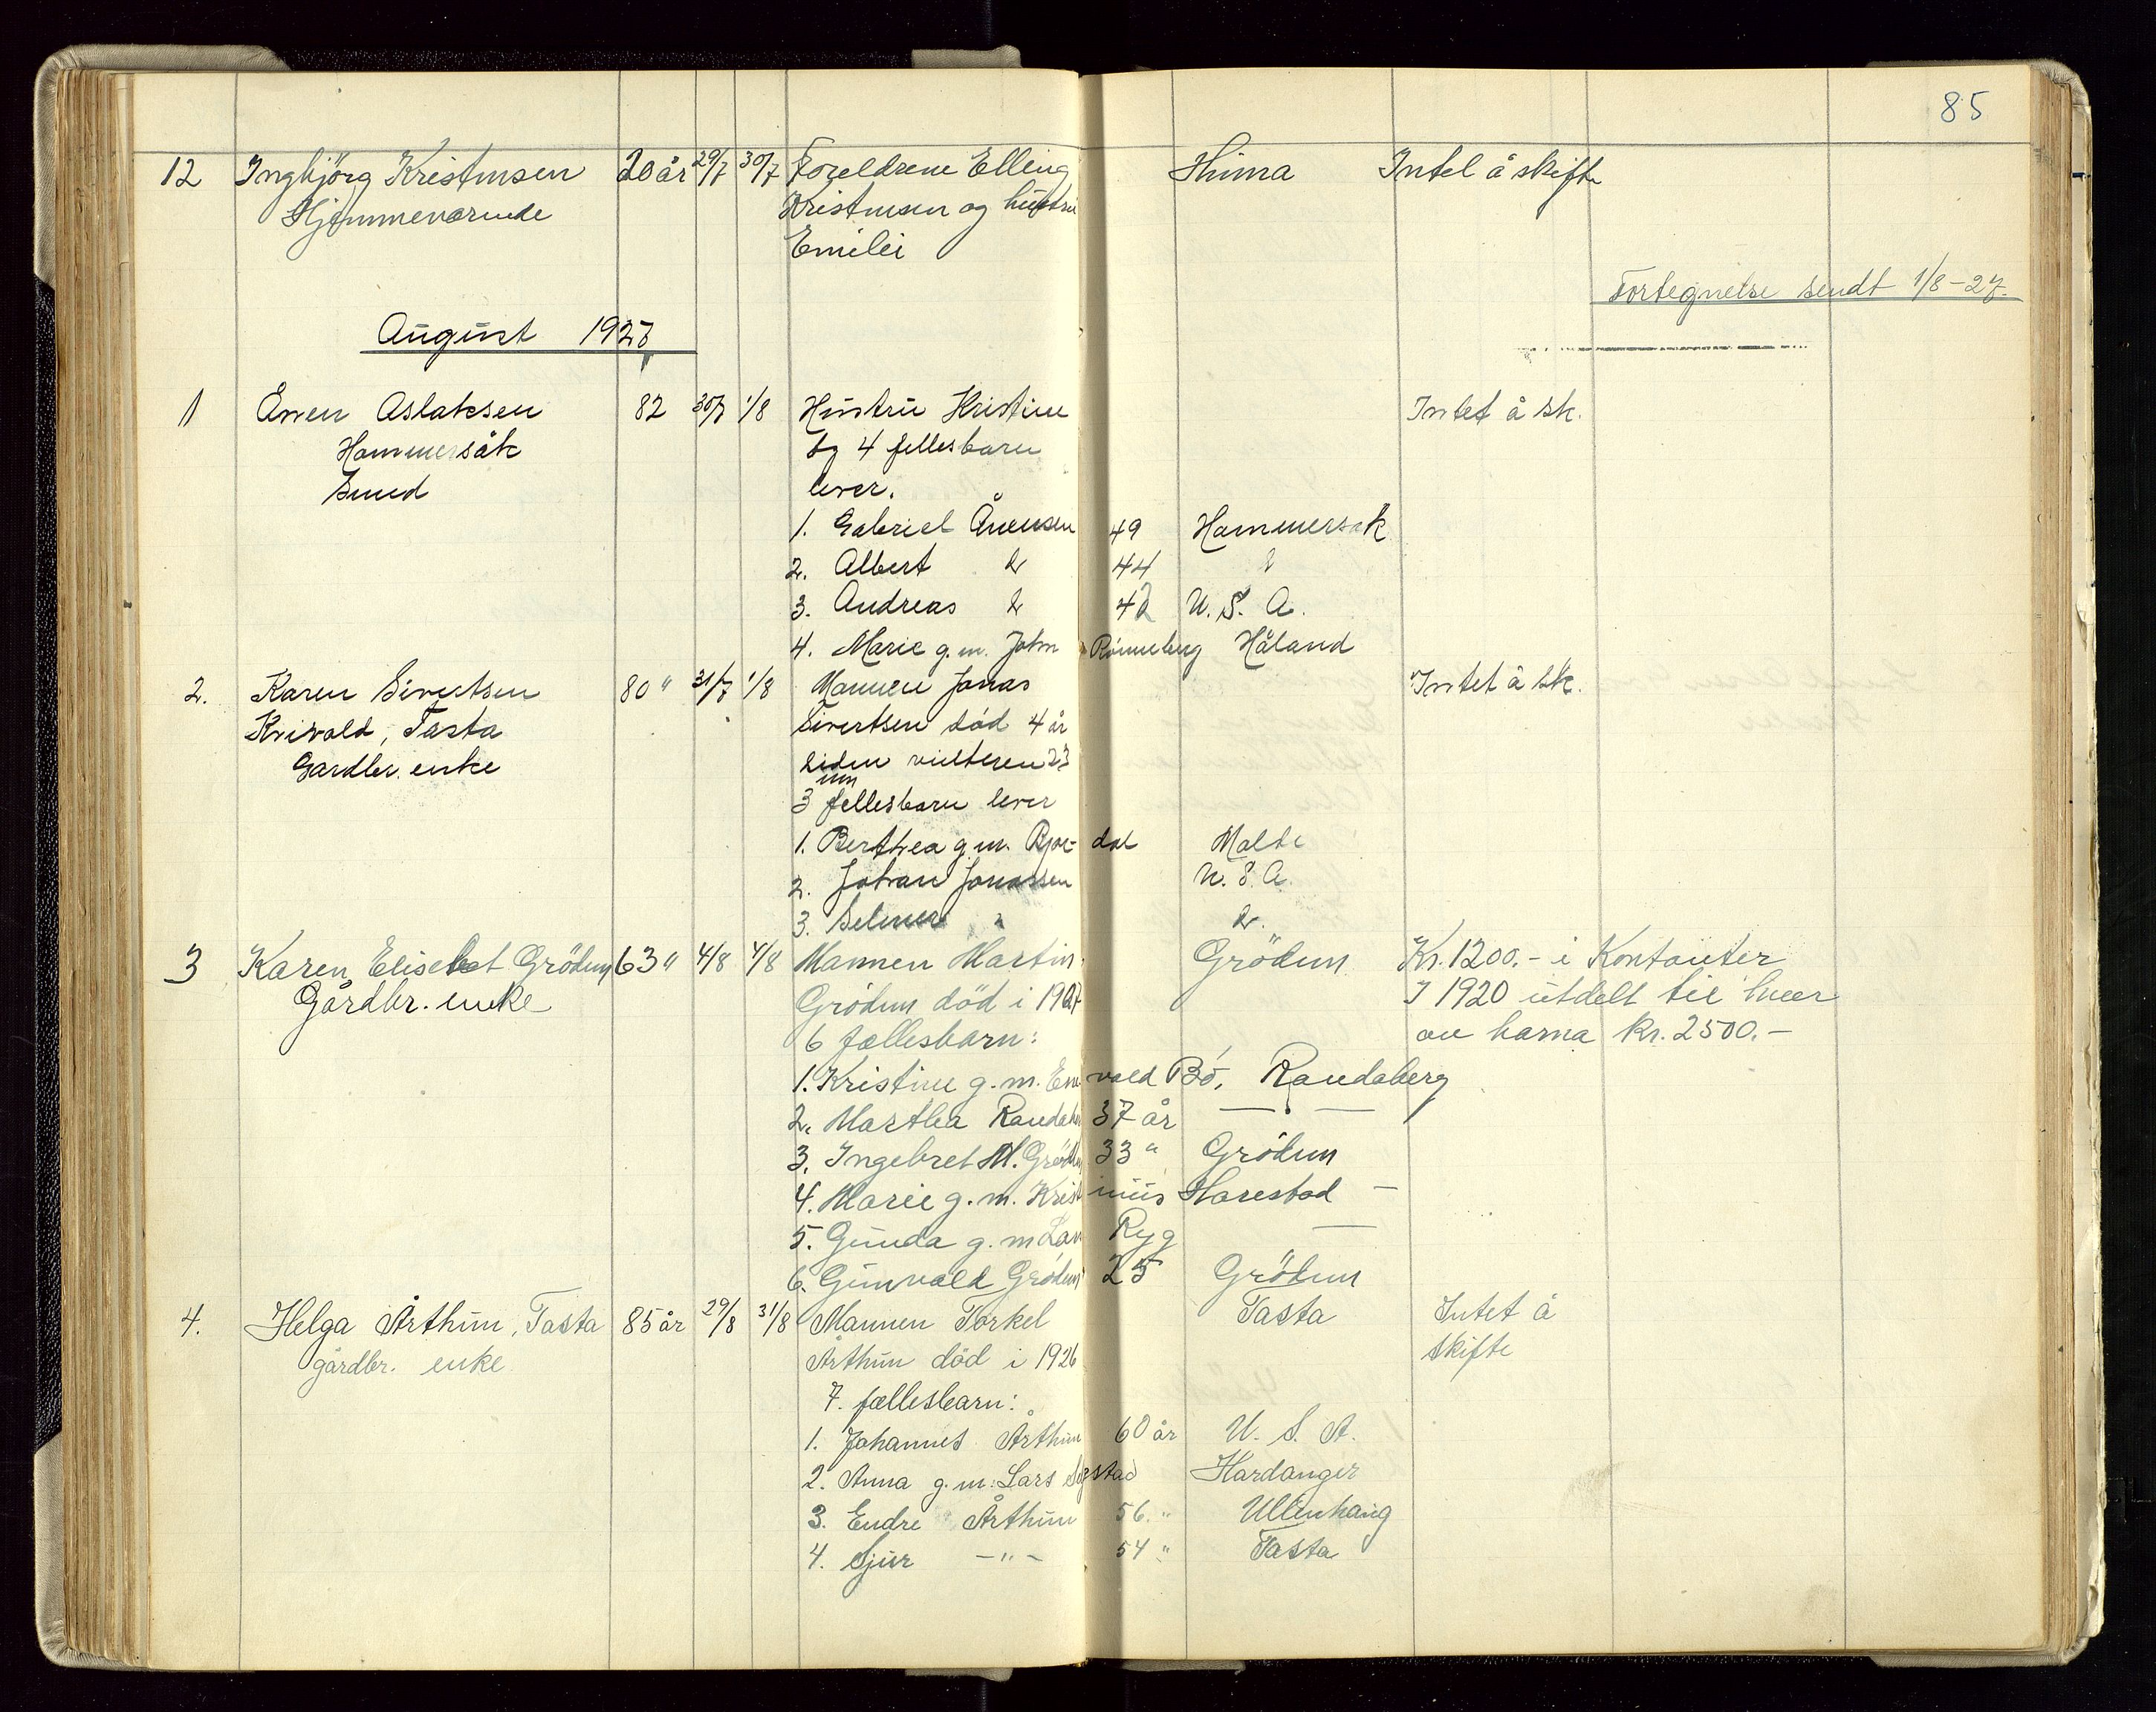 85
12 Ingbjörg Kristensen 20 år 29/7 30/7 Foreldrene Elling Hinna Intet å skifte
Hjemmeværende Kristensen og hustru
Emilei
Fortegnelse sendt 1/8-27.
August 1927
1 Enen Aslaksen 82 30/7 1/8 Hustru Kristine Intet å sk.
Hammersåk og 4 fellesbarn
Smed lever.
1. Gabriel Ånensen 49 Hammersak
2. Albert do 44 do
3. Andreas do 42 U. S. A.
4. Marie g.m. John Rönneberg Håland
2. Karen Sivertsen 80 " 31/7 1/8 Mannen Jonas Intet å sk.
Kvivold, Tasta Sivertsen död 4 år
Gardbr. enke siden
3 fellesbarn lever
1. Berthea g.m. dal
2. Johan Jonassen U. S. A.
3. Selmer " do.
3 Karen Elisebet Grödem 63 " 4/8 4/8 Mannen Martin Grödem Kr. 1200.- i Kontanter
Gårdbr. enke Grödem död i 1907 I 1920 utdelt til hver
6 fællesbarn: av barna kr. 2500.-
1. Kristine g.m. Enevald Bö, Randaberg
2. Martha Randab 37 år — " —
3. Ingebret M. Grödem 33 " Grödem
4. Marie g.m. Kristinius Harestad —
5. Gunda g.m Lars Ryg —
6. Gunvald Grödem 25 Grödem
4. Helga Årthun, Tasta 85 år 29/8 31/8 Mannen Torkel Tasta Intet å
gårdbr. enke Årthun död i 1926 skifte
7. fællesbarn:
1. Johannes Årthun 60 år U. S. A.
2. Anna g.m. Lars stad Hardanger
3. Endre Årthun 56. " Ullenhaug
4. Sjur -"- 54 " Tasta